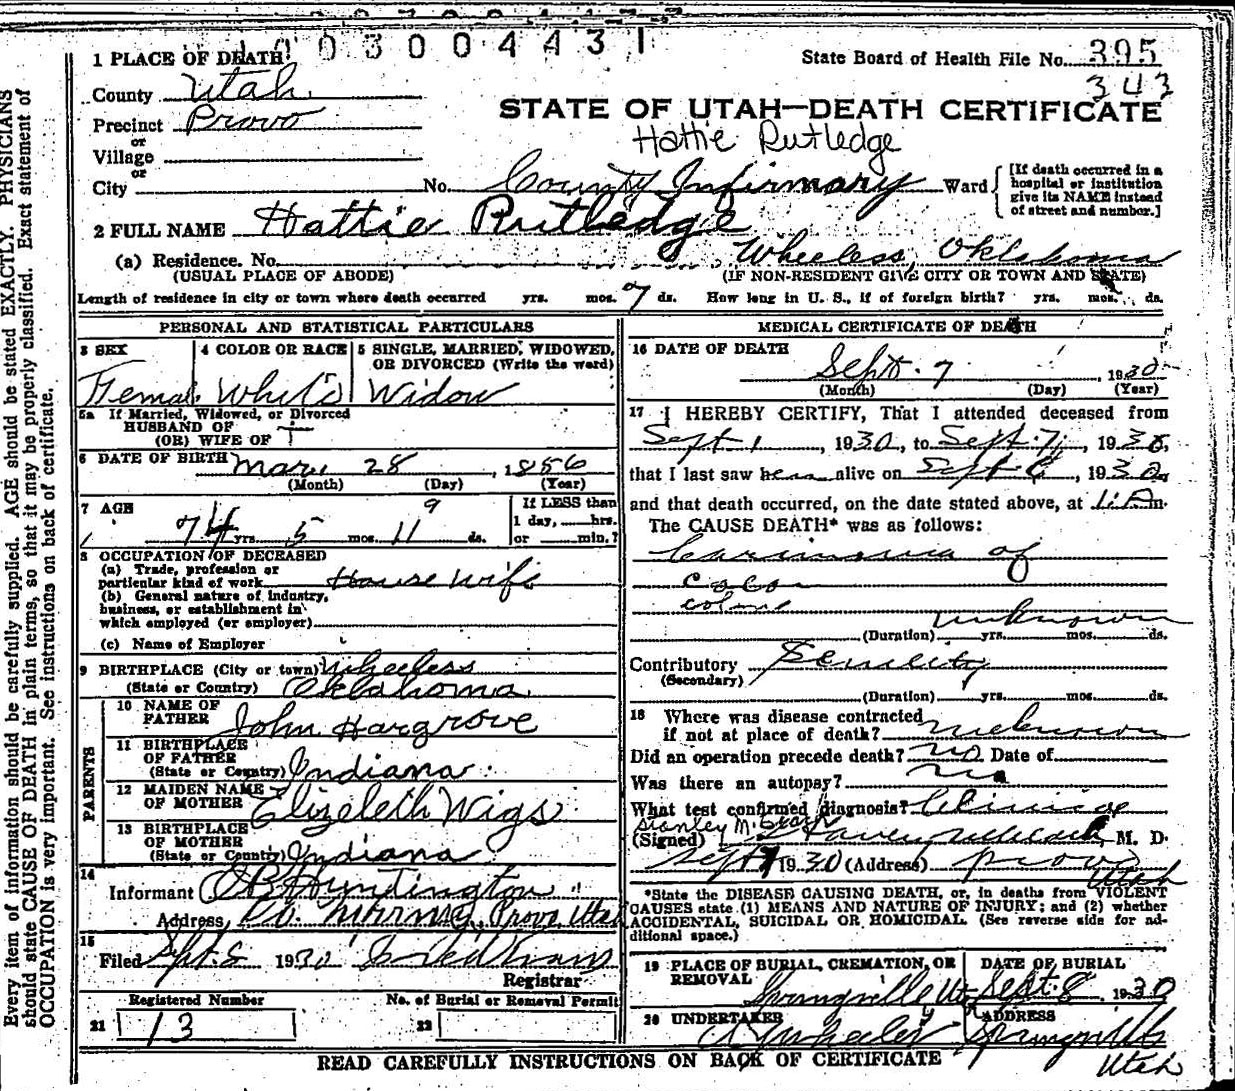 1003004431
1 PLACE OF DEATH
State Board of Health File No. 395
343
County Utah
Precinct Provo
STATE OF UTAH—DEATH CERTIFICATE
or
Village
Hattie Rutledge
or
City No. County Infirmary Ward
[If death occurred in a hospital or institution give its NAME instead of street and number.]
2 FULL NAME Hattie Rutledge
(a) Residence. No. Wheeless, Oklahoma
(USUAL PLACE OF ABODE) (IF NON-RESIDENT GIVE CITY OR TOWN AND STATE)
Length of residence in city or town where death occurred yrs. mos. 7 ds. How long in U. S., if of foreign birth? yrs. mos. ds.
PERSONAL AND STATISTICAL PARTICULARS
3 SEX 4 COLOR OR RACE 5 SINGLE, MARRIED, WIDOWED,
OR DIVORCED (Write the word)
Female White Widow
5a If Married, Widowed, or Divorced
HUSBAND OF
(OR) WIFE OF
6 DATE OF BIRTH Mar. 28, 1856
(Month) (Day) (Year)
7 AGE 9 If LESS than
74 yrs. 5 mos. 11 ds. 1 day, hrs.
or min.?
8 OCCUPATION OF DECEASED
(a) Trade, profession or
particular kind of work House wife
(b) General nature of industry,
business, or establishment in
which employed (or employer)
(c) Name of Employer
9 BIRTHPLACE (City or town) Wheeless
(State or Country) Oklahoma
PARENTS
10 NAME OF
FATHER John Hargrove
11 BIRTHPLACE
OF FATHER
(State or Country) Indiana
12 MAIDEN NAME
OF MOTHER Elizeleth Wigs
13 BIRTHPLACE
OF MOTHER
(State or Country) Indiana
14
Informant Huntington
Address Co. Infirmary, Provo Utah
15
Filed Sept. 8 1930
Registrar
Registered Number No. of Burial or Removal Permit
21 13 22
MEDICAL CERTIFICATE OF DEATH
16 DATE OF DEATH
Sept. 7, 1930
(Month) (Day) (Year)
17 I HEREBY CERTIFY, That I attended deceased from
Sept 1, 1930, to Sept. 7, 1930,
that I last saw her alive on Sept 6, 1930,
and that death occurred, on the date stated above, at 1. A m.
The CAUSE DEATH* was as follows:
Carcinoma of
colon
unknown
(Duration) yrs. mos. ds.
Contributory Senility
(Secondary)
(Duration) yrs. mos. ds.
18 Where was disease contracted
if not at place of death? unknown
Did an operation precede death? no Date of
Was there an autopsy? no
What test confirmed diagnosis? Clinical
Stanley M.
(Signed) M. D.
Sept 7 1930 (Address) Provo
Utah
*State the DISEASE CAUSING DEATH, or, in deaths from VIOLENT
CAUSES state (1) MEANS AND NATURE OF INJURY; and (2) whether
ACCIDENTAL, SUICIDAL OR HOMICIDAL. (See reverse side for ad-
ditional space.)
19 PLACE OF BURIAL, CREMATION, OR DATE OF BURIAL
REMOVAL
Springville Ut Sept. 8, 1930
20 UNDERTAKER ADDRESS
Wheeler Springville
Utah
READ CAREFULLY INSTRUCTIONS ON BACK OF CERTIFICATE
Every item of information should be carefully supplied. AGE should be stated EXACTLY. PHYSICIANS
should state CAUSE OF DEATH in plain terms, so that it may be properly classified. Exact statement of
OCCUPATION is very important. See instructions on back of certificate.